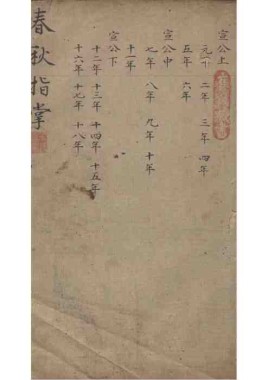 宣公上
元年 二年 三年 四年
五年 六年
宣公中
七年 八年 九年 十年
十一年
宣公下
十二年 十三年 十四年 十五年
十六年 十七年 十八年
春秋指掌